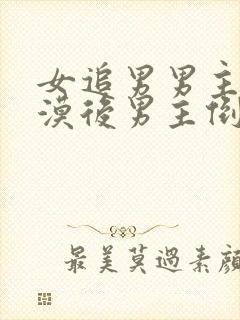 女追男男主
漠後男主倒
最美莫過素顏